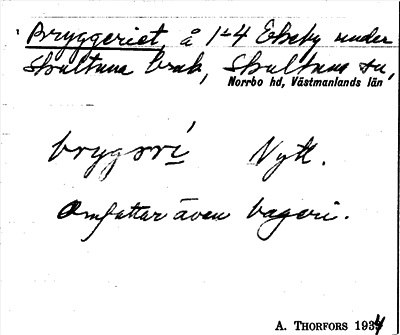 Bryggeriet, å 1-4 Ekeby under
Skultuna bruk, Skultuna sn,
Norrbo hd, Västmanlands län
bryggrí Nytt.
Omfattar även bageri.
A. THORFORS 1934